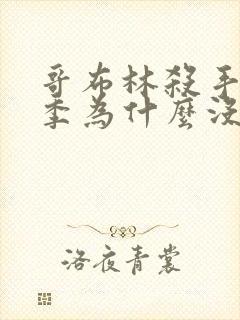 哥布林殺手
季為什麼沒
洛夜青裳